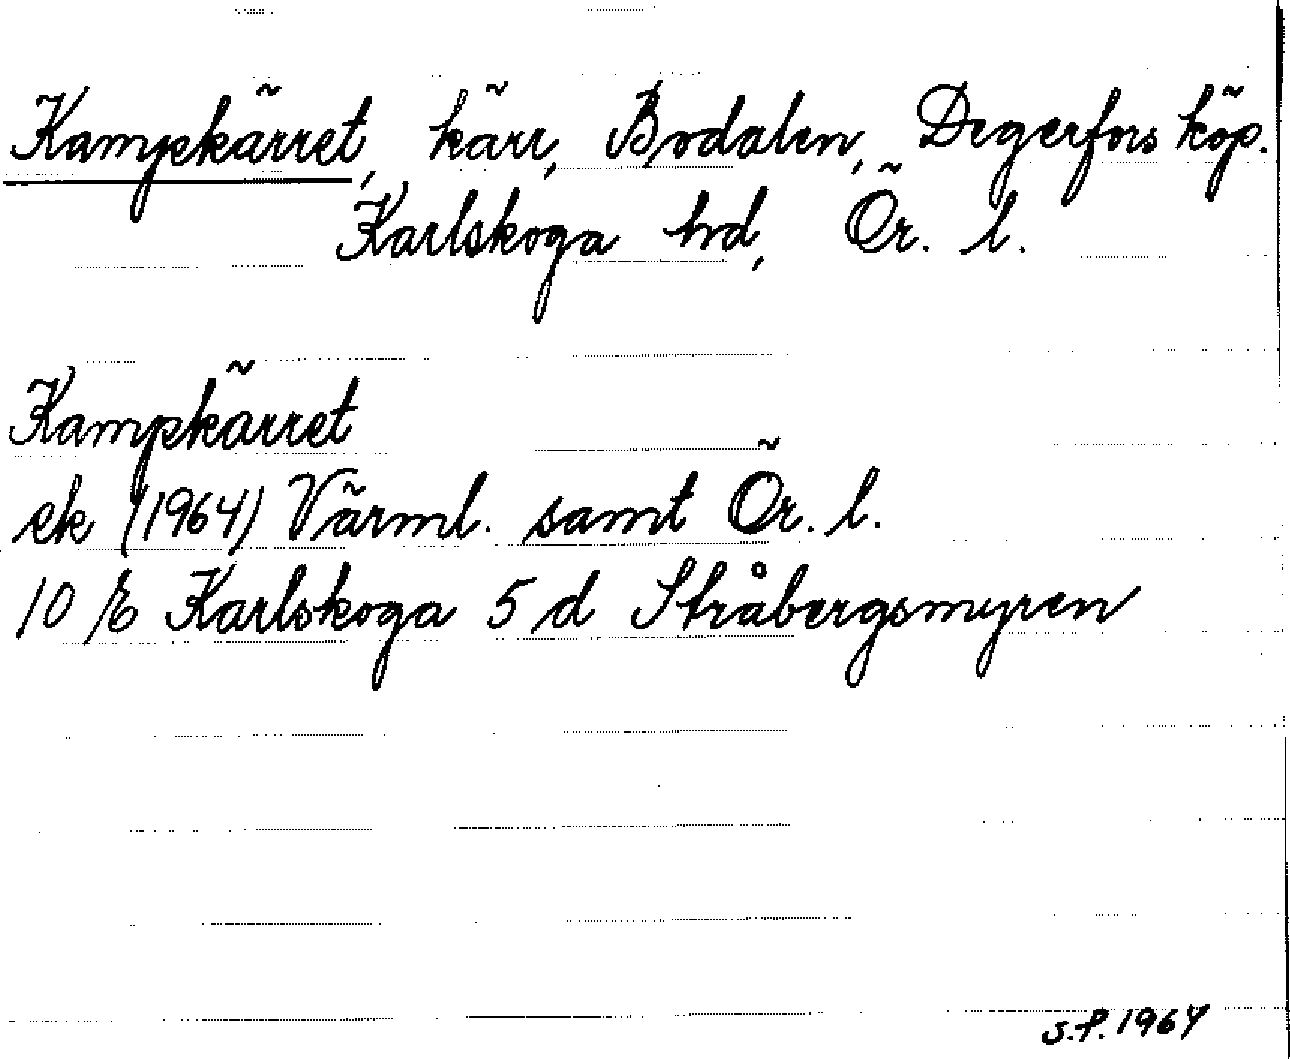 Kampkärret, kärr, Bodalen, Degerfors köp.
Karlskoga hd, Ör. l.
Kampkärret
ek (1964) Värml. samt Ör. l.
10 E Karlskoga 5 d Stråbergsmyren
S.P. 1967